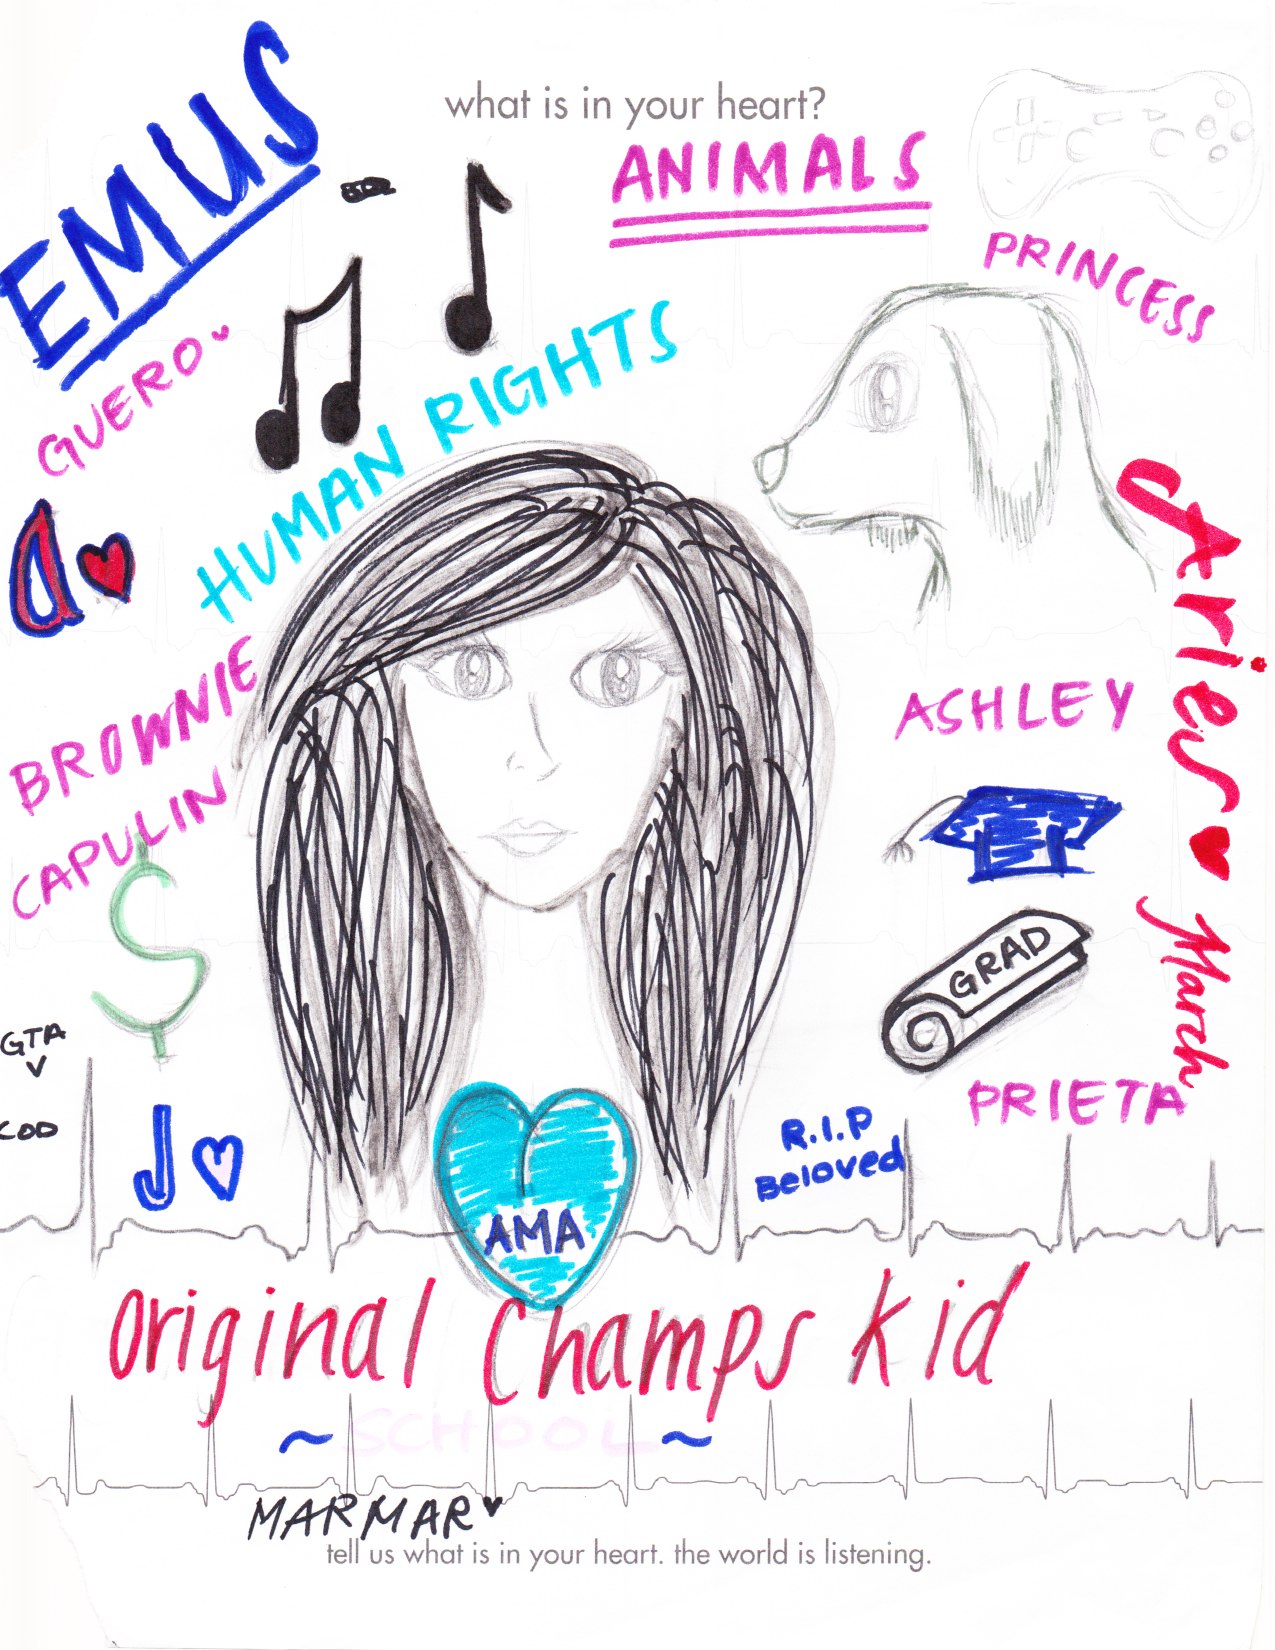 what is in your heart?
EMUS
ANIMALS
PRINCESS
GUERO
HUMAN RIGHTS
Aries
BROWNIE
ASHLEY
CAPULIN
$
GRAD
March
GTA
V
COD
PRIETA
J
R.I.P
Beloved
AMA
Original Champs Kid
~ SCHOOL ~
MARMAR
tell us what is in your heart. the world is listening.